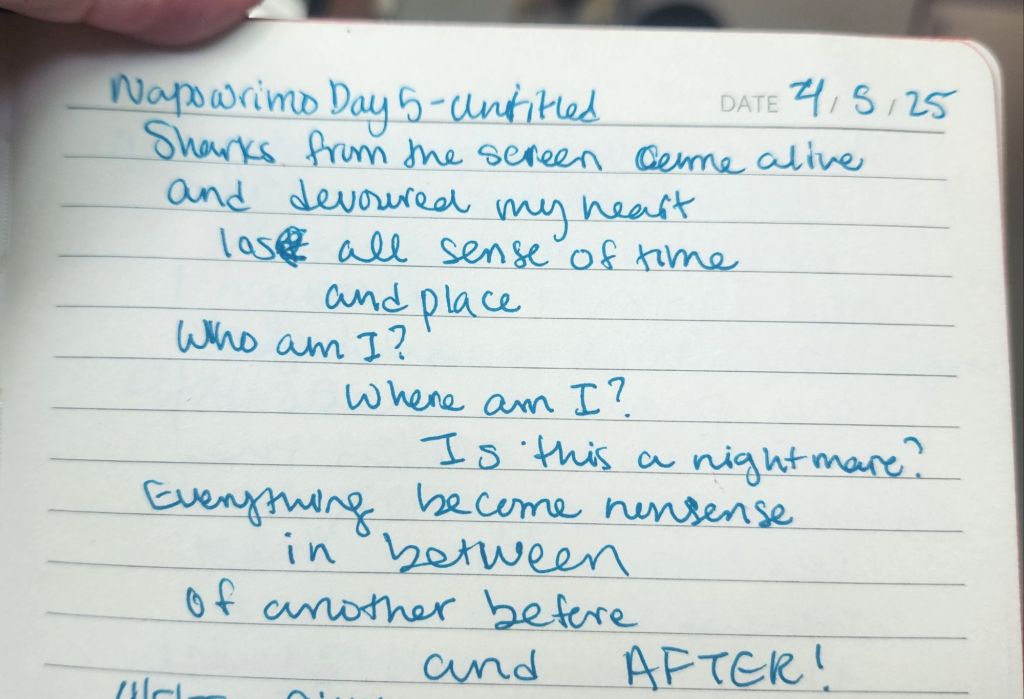 Napowrimo Day 5 - Untitled DATE 4/5/25
Sharks from the screen came alive
and devoured my heart
lose all sense of time
and place
Who am I?
Where am I?
Is this a nightmare?
Everything become nonsense
in between
of another before
and AFTER!